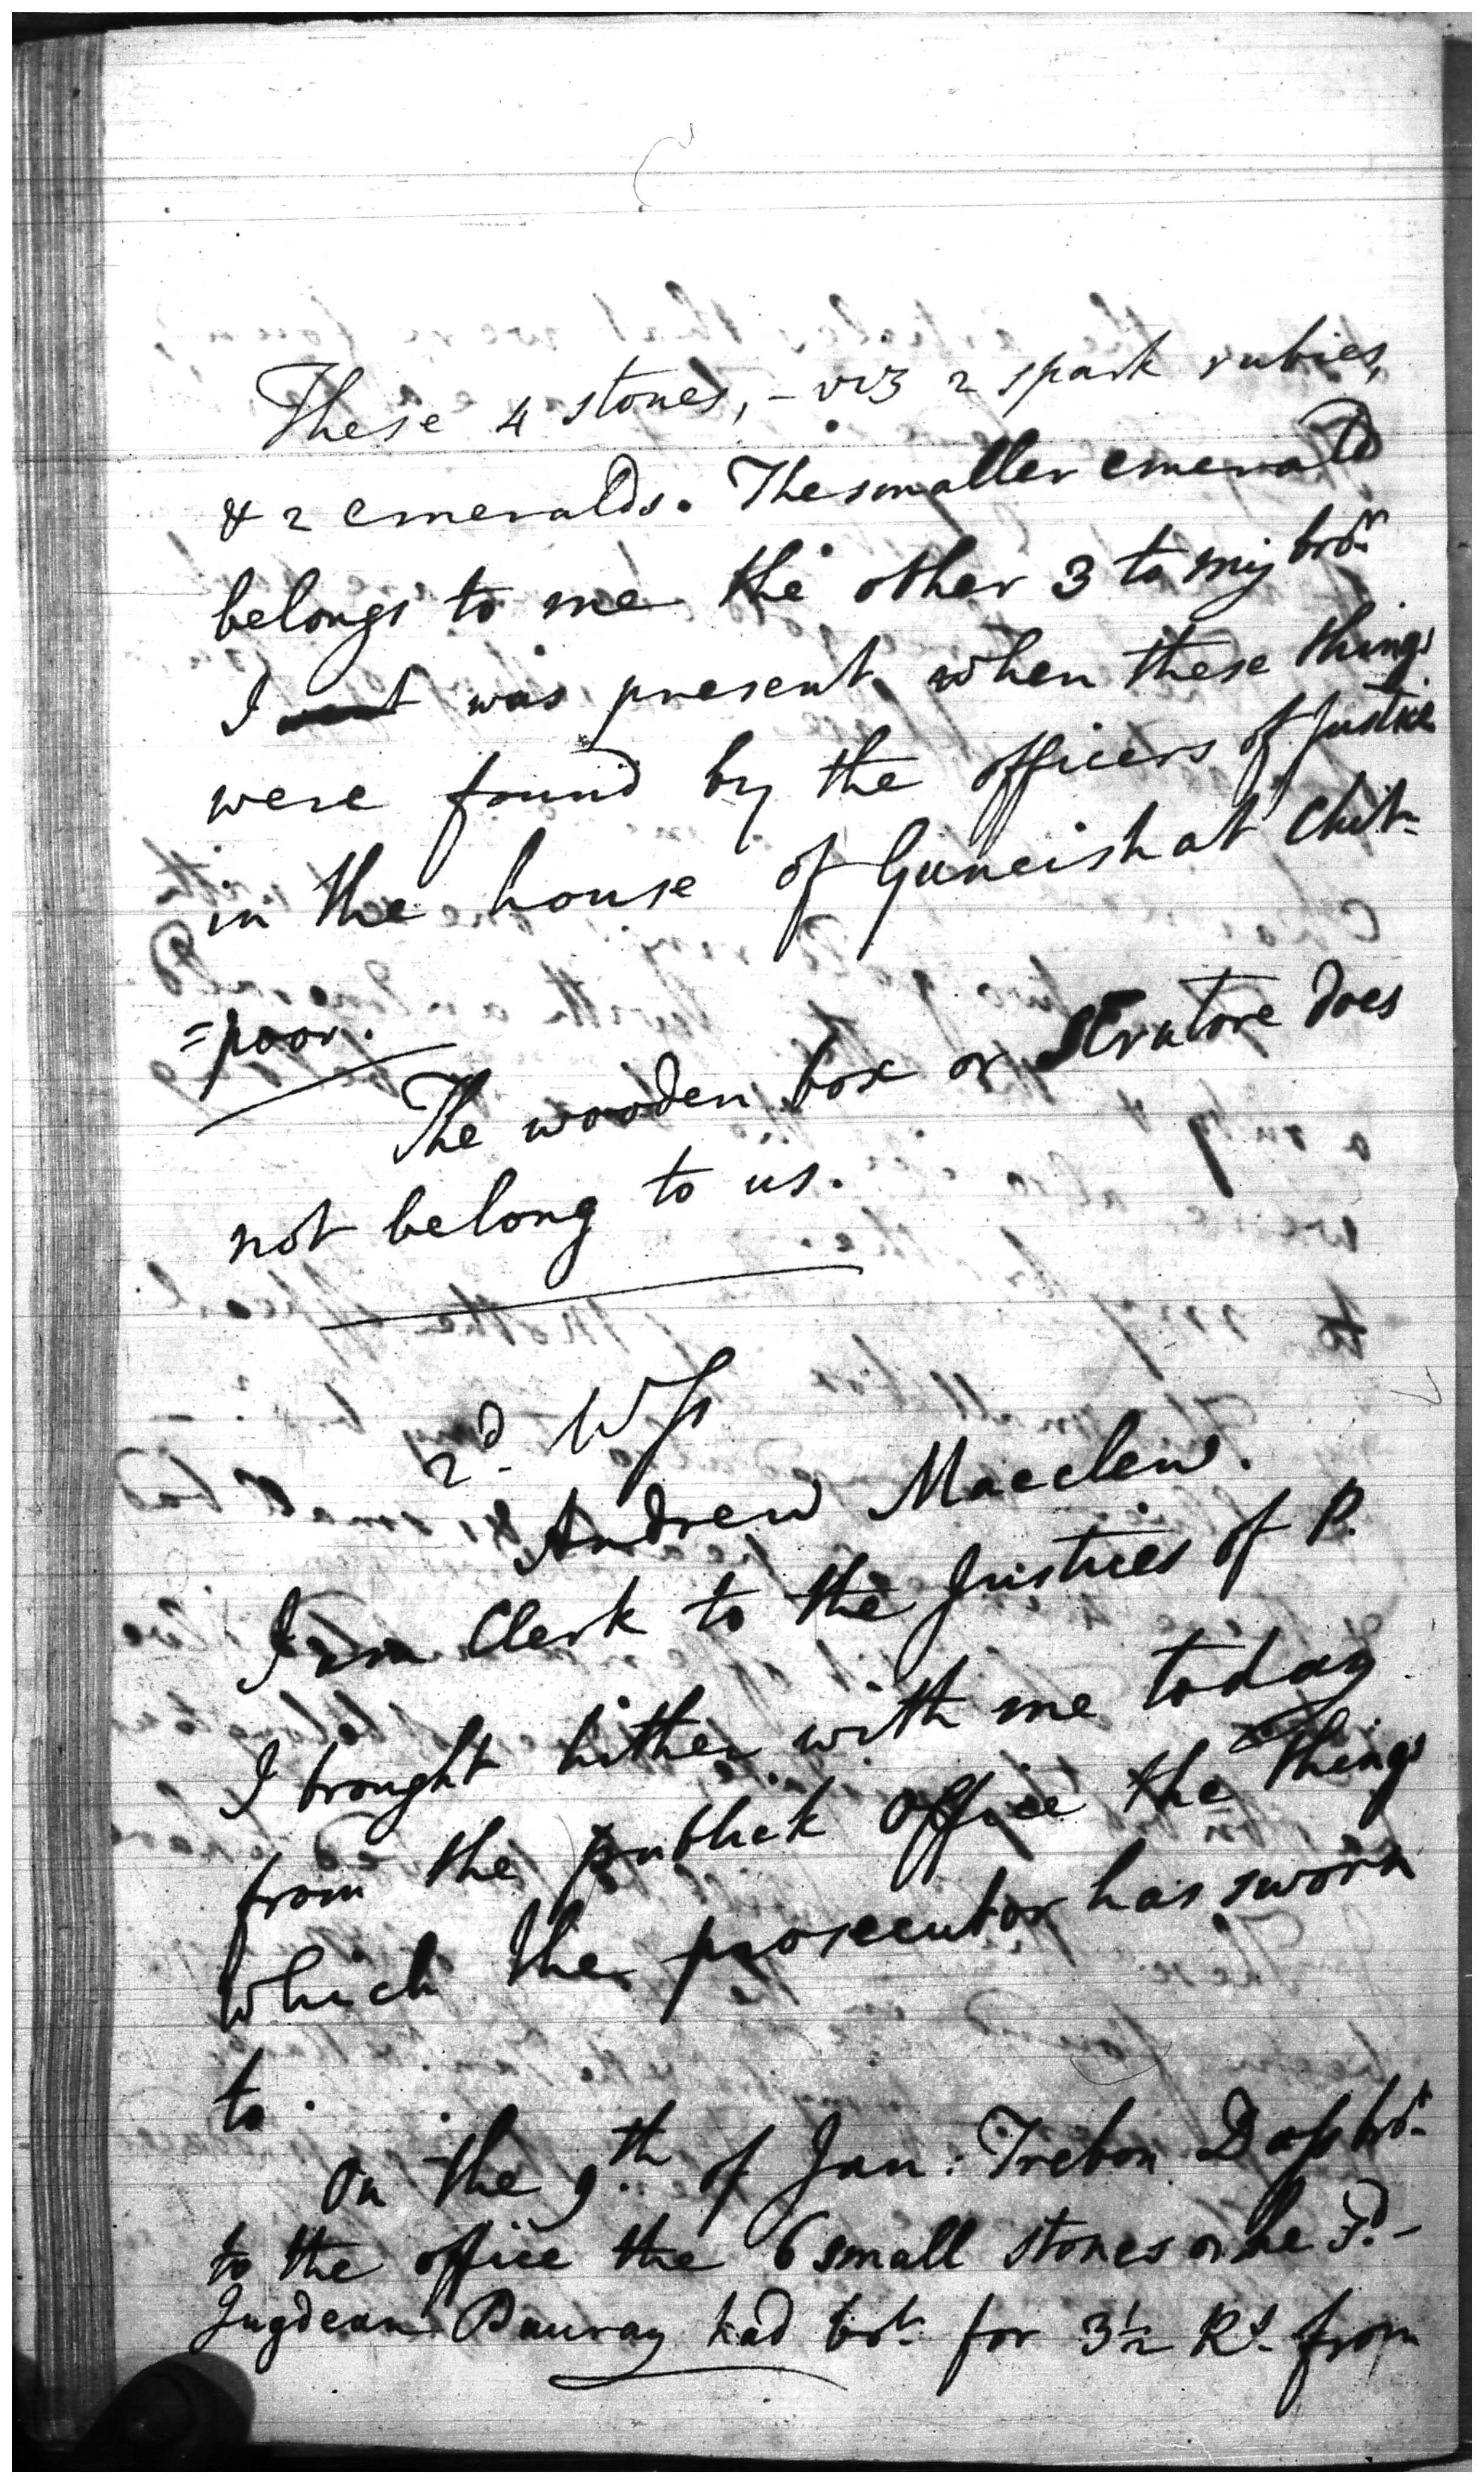 These 4 stones, – viz 2 spark rubies,
& 2 emeralds. The smaller emerald
belongs to me the other 3 to my bror.
I was present when these things
were found by the officers of Justice
in the house of Guneish at Chit-
=poor.
The wooden box or Scrutore does
not belong to us.
2d. Wss
Andrew Macclew.
I am Clerk to the Justices of P.
I brought hither with me today
from the publick office the things
which the prosecutor has sworn
to.
On the 9th. of Jan: Trebon Dass brt.
to the office the 6 small stones he sd. –
Jugdean Pauray had bt. for 3½ Rs. from